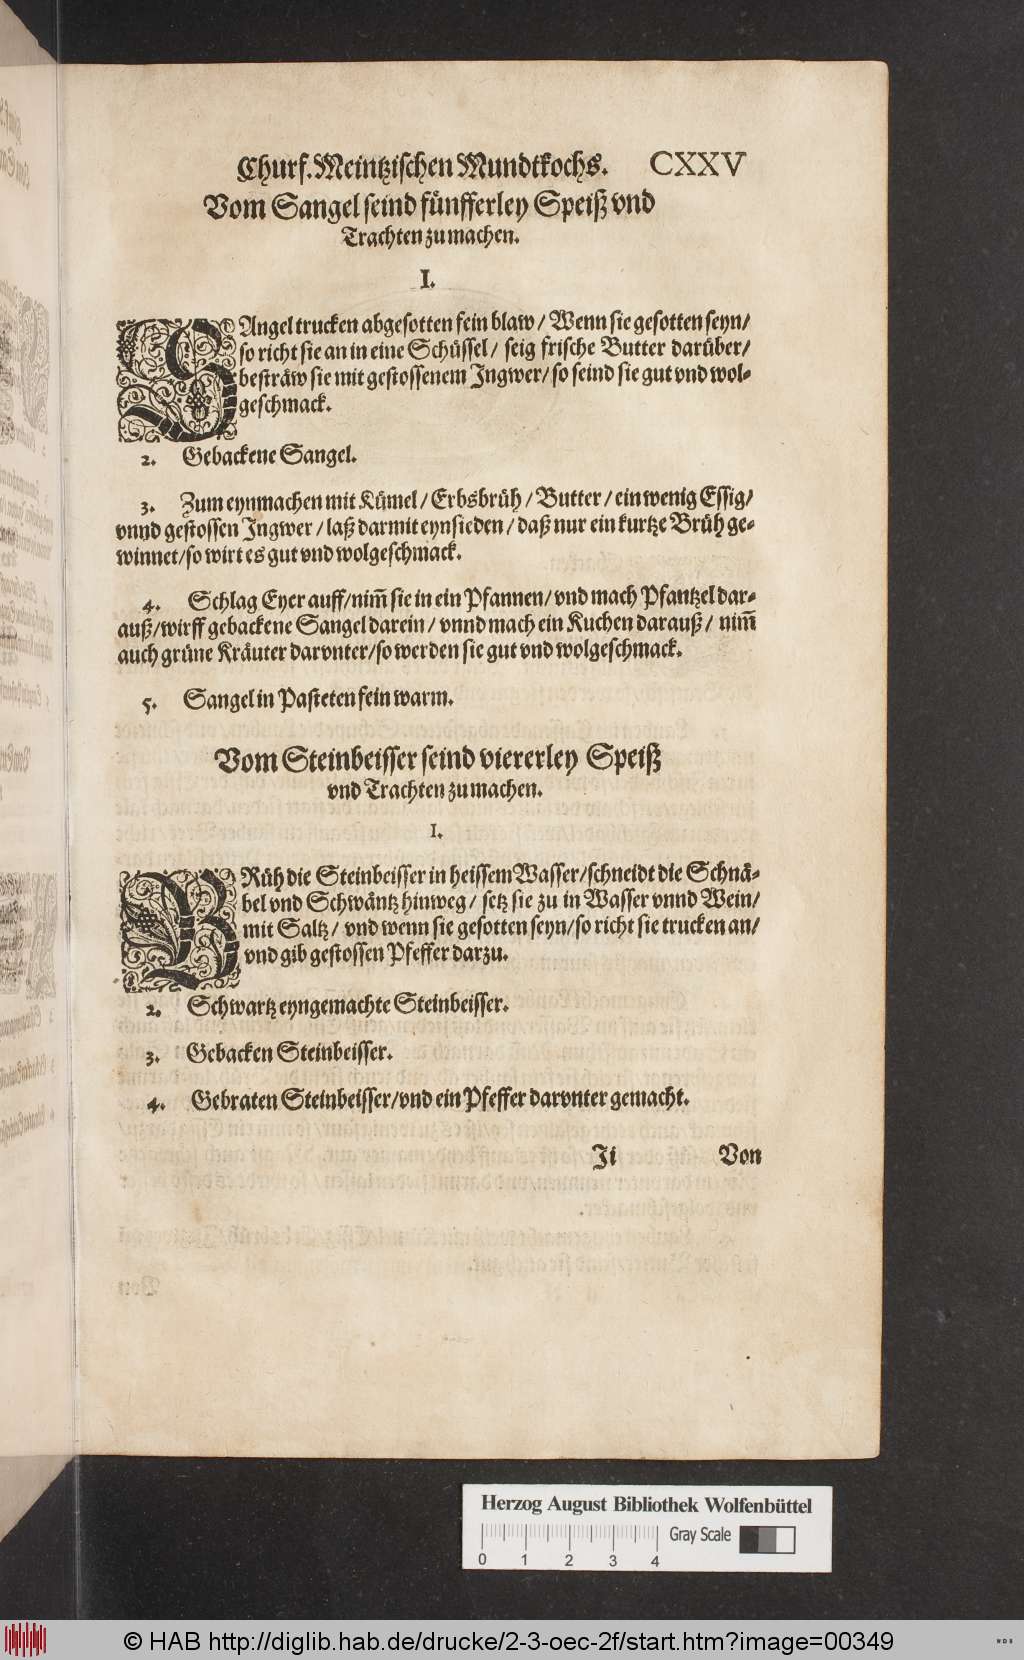 Churf. Meintzischen Mundtkochs. CXXV
Vom Sangel seind fünfferley Speiß vnd
Trachten zu machen.
I.
SAngel trucken abgesotten fein blaw / Wenn sie gesotten seyn /
so richt sie an in eine Schüssel / seig frische Butter darüber /
besträw sie mit gestossenem Ingwer / so seind sie gut vnd wol-
geschmack.
2. Gebackene Sangel.
3. Zum eynmachen mit Kümel / Erbsbrüh / Butter / ein wenig Essig /
vnnd gestossen Ingwer / laß darmit eynsieden / daß nur ein kurtze Brüh ge-
winnet / so wirt es gut vnd wolgeschmack.
4. Schlag Eyer auff / nim̄ sie in ein Pfannen / vnd mach Pfantzel dar-
auß / wirff gebackene Sangel darein / vnnd mach ein Kuchen darauß / nim̄
auch grüne Kräuter darvnter / so werden sie gut vnd wolgeschmack.
5. Sangel in Pasteten fein warm.
Vom Steinbeisser seind viererley Speiß
vnd Trachten zu machen.
I.
BRüh die Steinbeisser in heissem Wasser / schneidt die Schnä-
bel vnd Schwäntz hinweg / setz sie zu in Wasser vnnd Wein /
mit Saltz / vnd wenn sie gesotten seyn / so richt sie trucken an /
vnd gib gestossen Pfeffer darzu.
2. Schwartz eyngemachte Steinbeisser.
3. Gebacken Steinbeisser.
4. Gebraten Steinbeisser / vnd ein Pfeffer darvnter gemacht.
Ii Von
Herzog August Bibliothek Wolfenbüttel
Gray Scale
0 1 2 3 4
© HAB http://diglib.hab.de/drucke/2-3-oec-2f/start.htm?image=00349